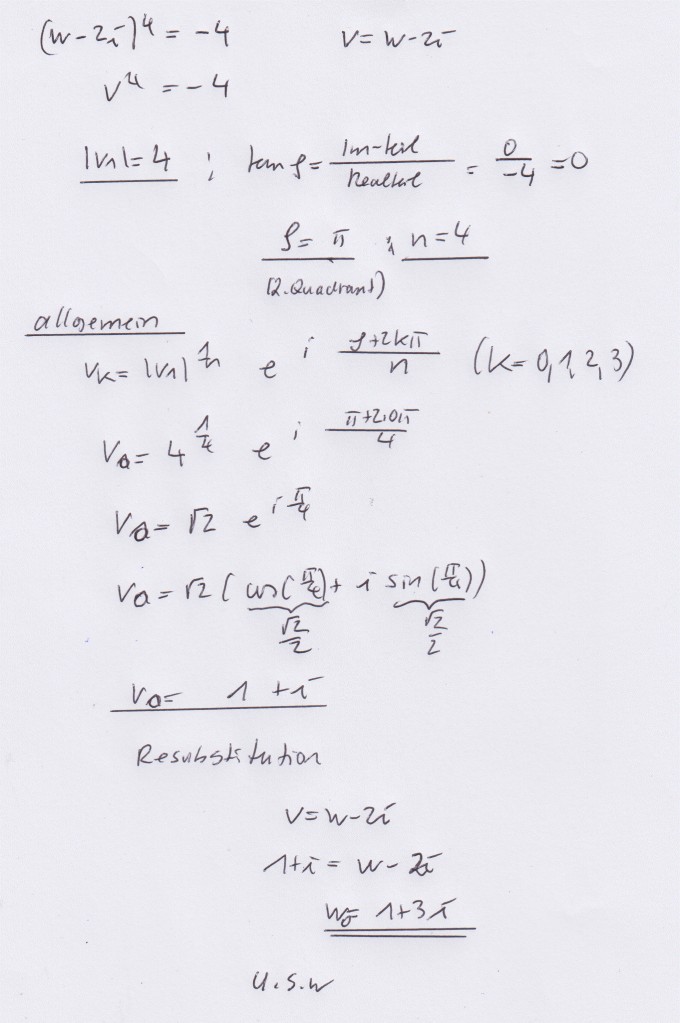 (w-2i)⁴ = -4 v = w-2i
v⁴ = -4
|v₁| = 4 ; tan φ = Im-teil/Realteil = 0/-4 = 0
φ = π ; n = 4
(2. Quadrant)
allgemein
vₖ = |v₁|^(1/n) e^(i (φ+2kπ)/n) (k = 0, 1, 2, 3)
v₀ = 4^(1/4) e^(i (π+2·0π)/4)
v₀ = √2 e^(i π/4)
v₀ = √2 (cos(π/4) + i sin(π/4))
√2/2 √2/2
v₀ = 1 + i
Resubstitution
v = w-2i
1+i = w-2i
w₀ = 1+3i
u.s.w